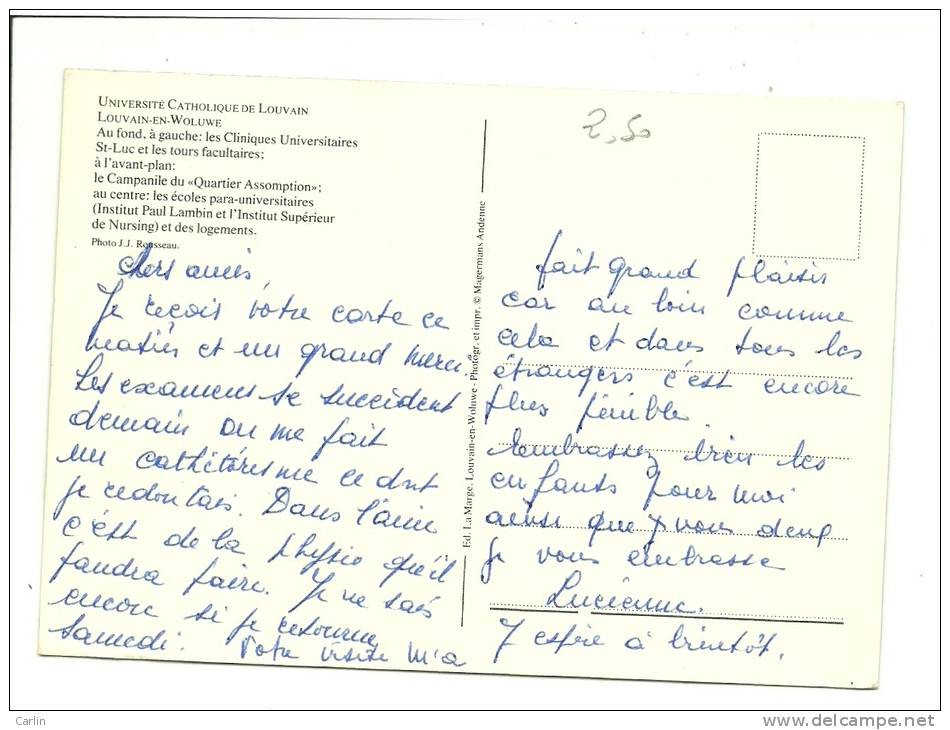 UNIVERSITÉ CATHOLIQUE DE LOUVAIN
LOUVAIN-EN-WOLUWE
Au fond, à gauche: les Cliniques Universitaires
St-Luc et les tours facultaires;
à l'avant-plan:
le Campanile du «Quartier Assomption»;
au centre: les écoles para-universitaires
(Institut Paul Lambin et l'Institut Supérieur
de Nursing) et des logements.
Photo J.J. Rousseau.
Chers amis,
Je reçois votre carte ce
matin et un grand merci.
Les examens se succèdent
demain on me fait
un cathétérisme ce dont
je redoutais. Dans l'aine
c'est de la physio qu'il
faudra faire. Je ne sais
encore si je retourne
samedi. Votre visite m'a
Ed. La Marge. Louvain-en-Woluwe - Photogr. et impr. © Magermans Andenne
2,50
fait grand plaisir
car au loin comme
cela et dans tous les
étrangers c'est encore
plus pénible.
Embrassez bien les
enfants pour moi
ainsi que vous deux
je vous embrasse
Lucienne.
J'espère à bientôt.
Carlin
delcampe.net